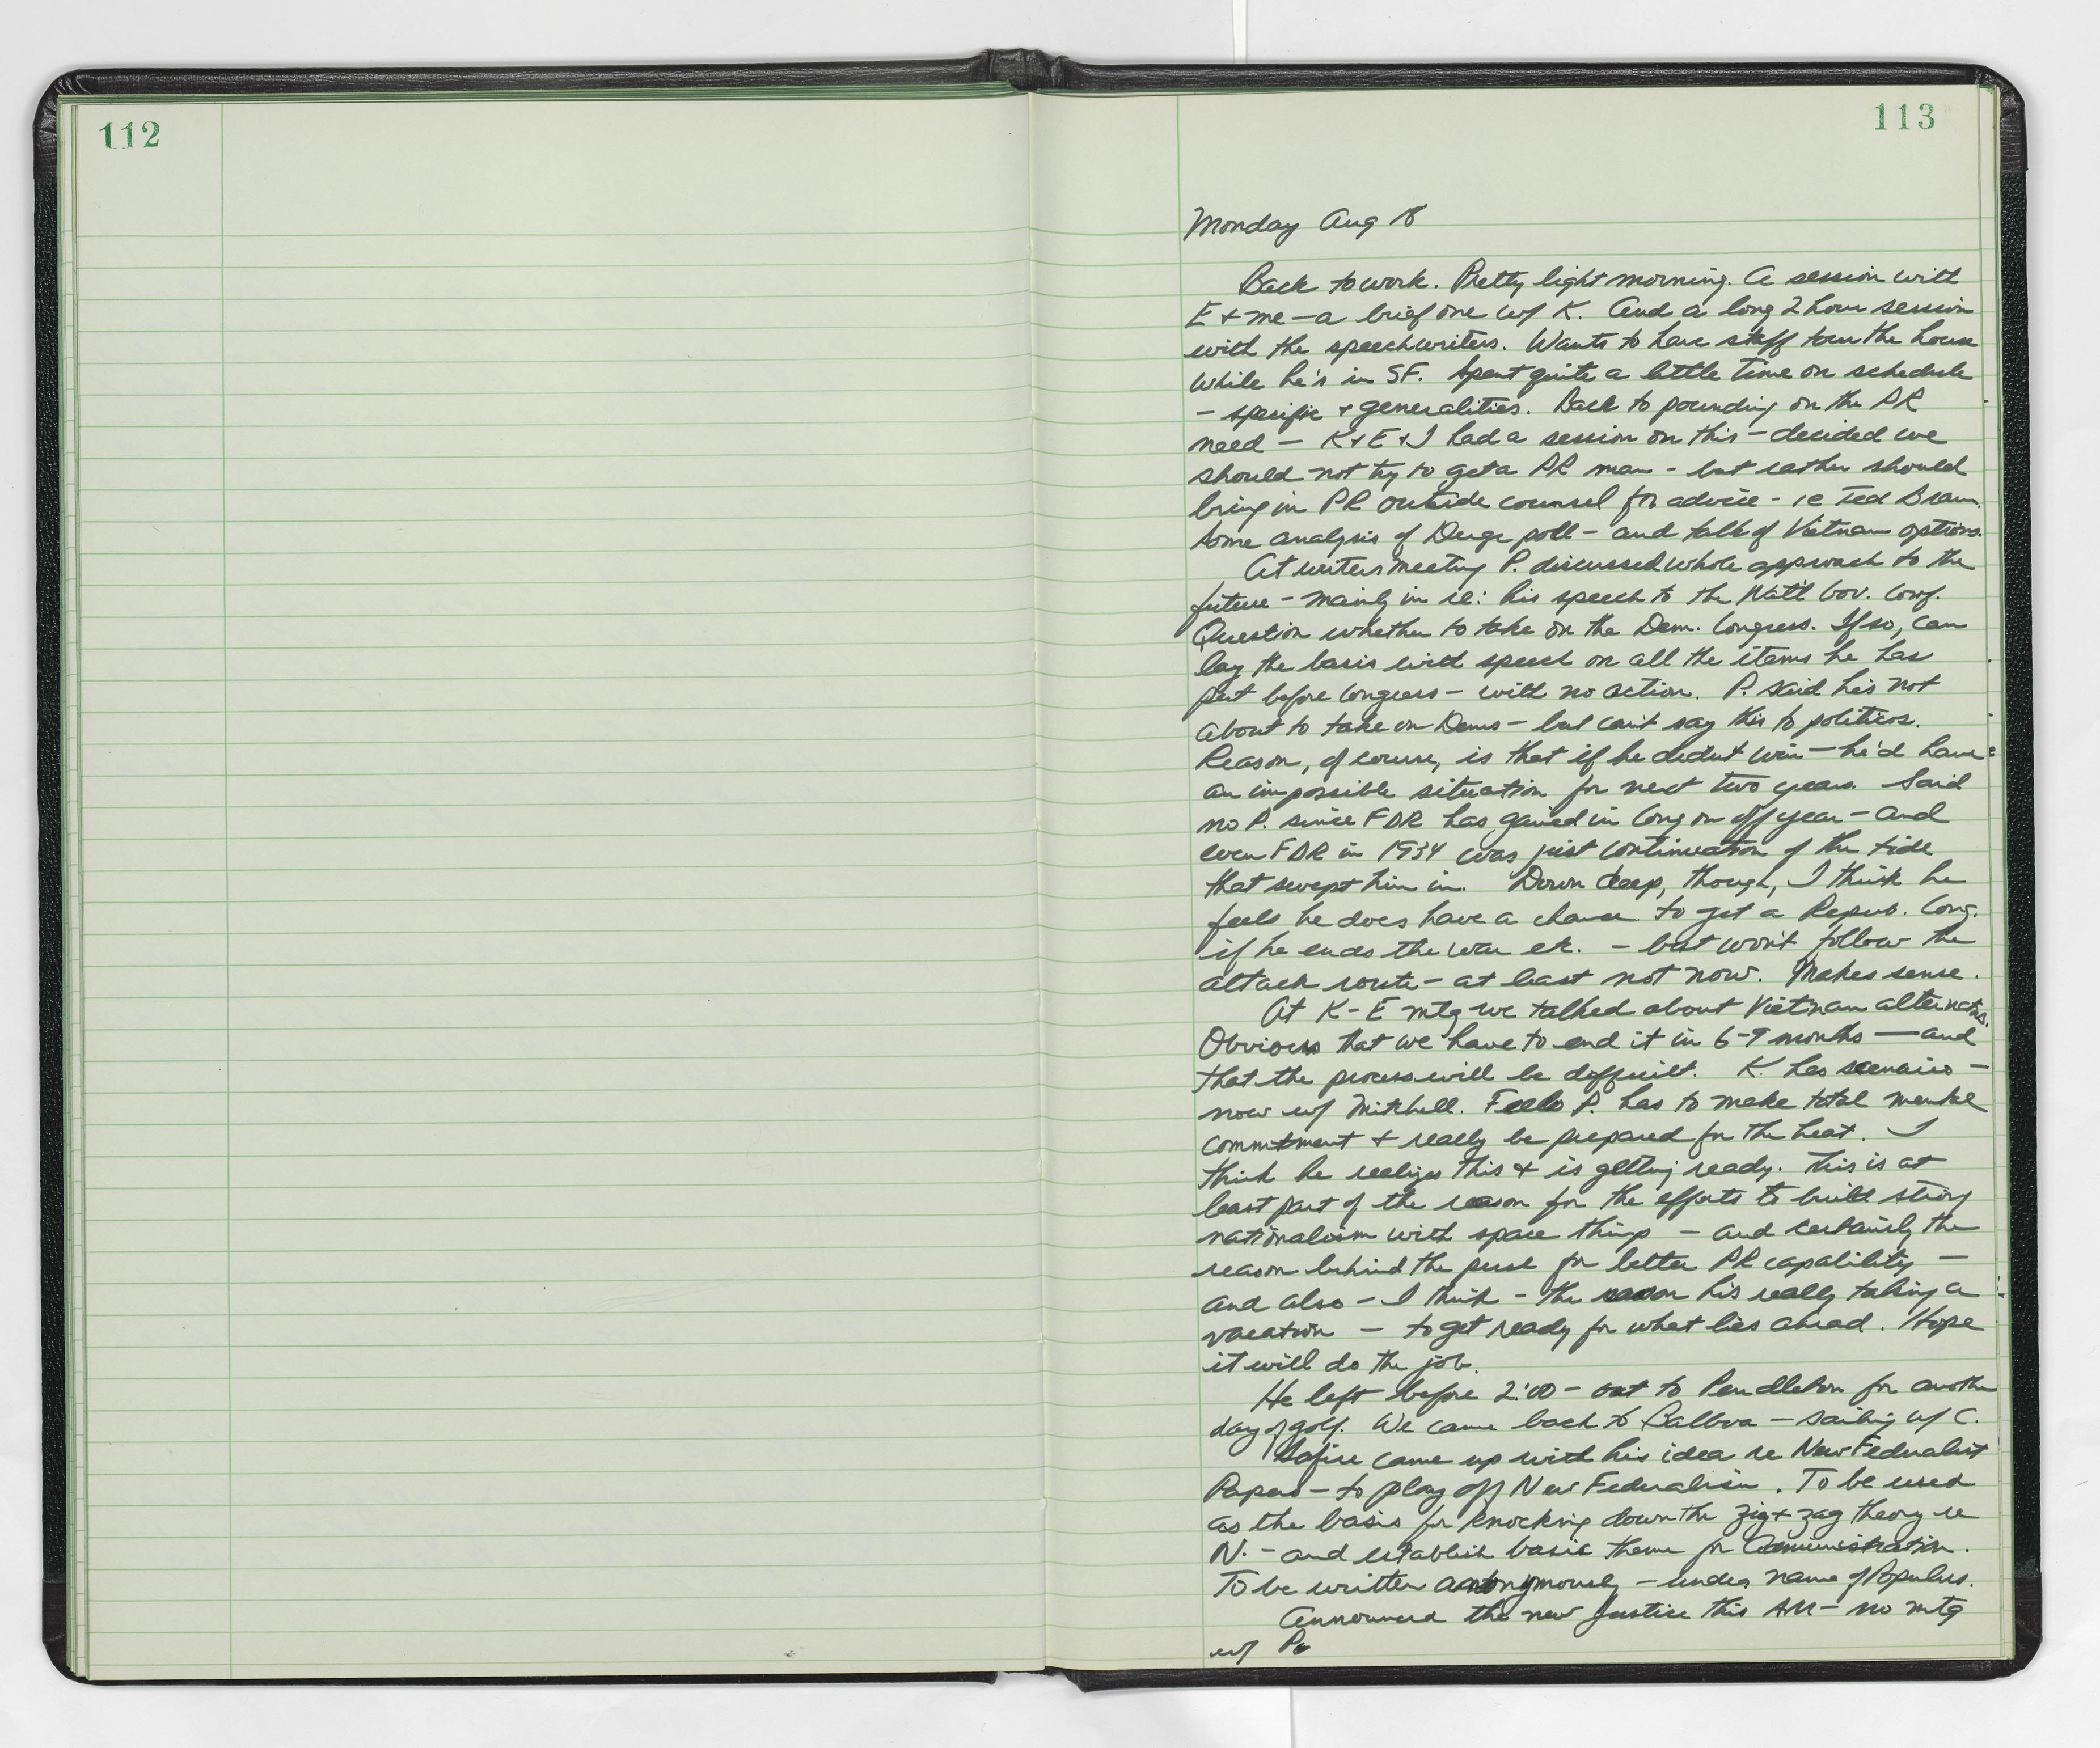 112
113
Monday Aug 18
Back to work. Pretty light morning. A session with
E + me – a brief one w/ K. And a long 2 hour session
with the speechwriters. Wants to have staff tour the house
while he's in SF. Spent quite a little time on schedule
– specific + generalities. Back to pounding on the PR
need – K + E + I had a session on this – decided we
should not try to get a PR man – but rather should
bring in PR outside counsel for advice – ie Ted Braun.
Some analysis of Derge poll – and talk of Vietnam options.
At writers meeting P. discussed whole approach to the
future – mainly in re: his speech to the Nat'l Gov. Conf.
Question whether to take on the Dem. Congress. If so, can
lay the basis with speech on all the items he has
put before Congress – with no action. P. said he's not
about to take on Dems – but can't say this to politicos.
Reason, of course, is that if he didn't win – he'd have
an impossible situation for next two years. Said
no P. since FDR has gained in Cong on off year – and
even FDR in 1934 was just continuation of the tide
that swept him in. Down deep, though, I think he
feels he does have a chance to get a Repub. Cong.
if he ends the war etc. – but won't follow the
attack route – at least not now. Makes sense.
At K-E mtg we talked about Vietnam alternatives.
Obvious that we have to end it in 6-9 months – and
that the process will be difficult. K. has scenario –
now w/ Mitchell. Feels P. has to make total mental
commitment + really be prepared for the heat. I
think he realizes this + is getting ready. This is at
least part of the reason for the efforts to build strong
nationalism with space things – and certainly the
reason behind the push for better PR capability –
and also – I think – the reason he's really taking a
vacation – to get ready for what lies ahead. Hope
it will do the job.
He left before 2:00 – out to Pendleton for another
day of golf. We came back to Balboa – sailing w/ C.
Safire came up with his idea re New Federalist
Papers – to play off New Federalism. To be used
as the basis for knocking down the zig + zag theory re
N. – and establish basic theme for Administration.
To be written anonymously – under name of Populus.
Announced the new Justice this AM – no mtg
w/ P.